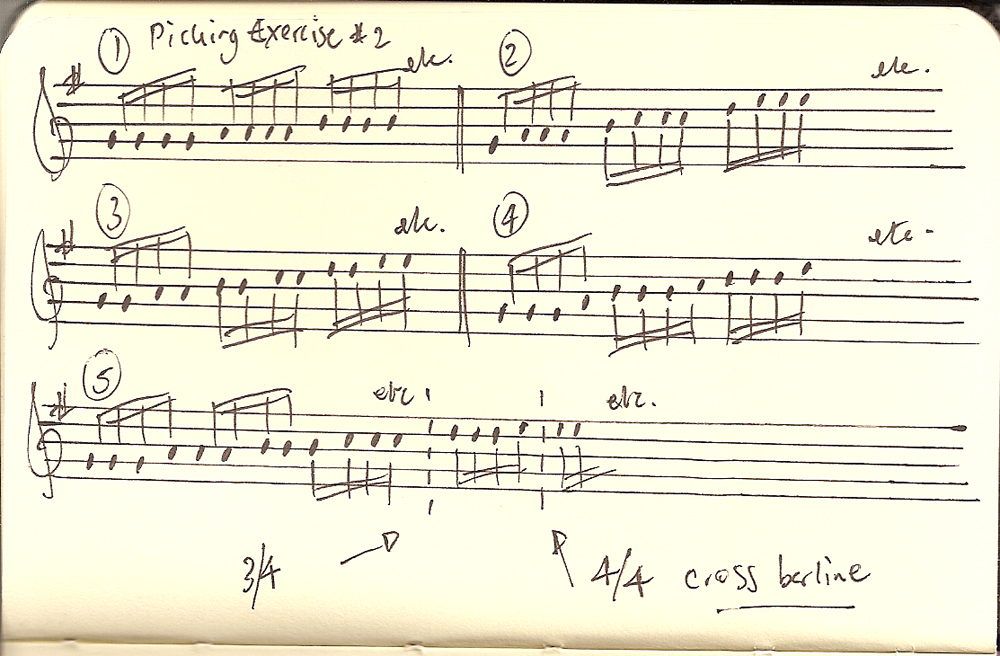 Picking Exercise #2
① etc. ② etc.
③ etc. ④ etc.
⑤ etc etc.
3/4 4/4 cross barline